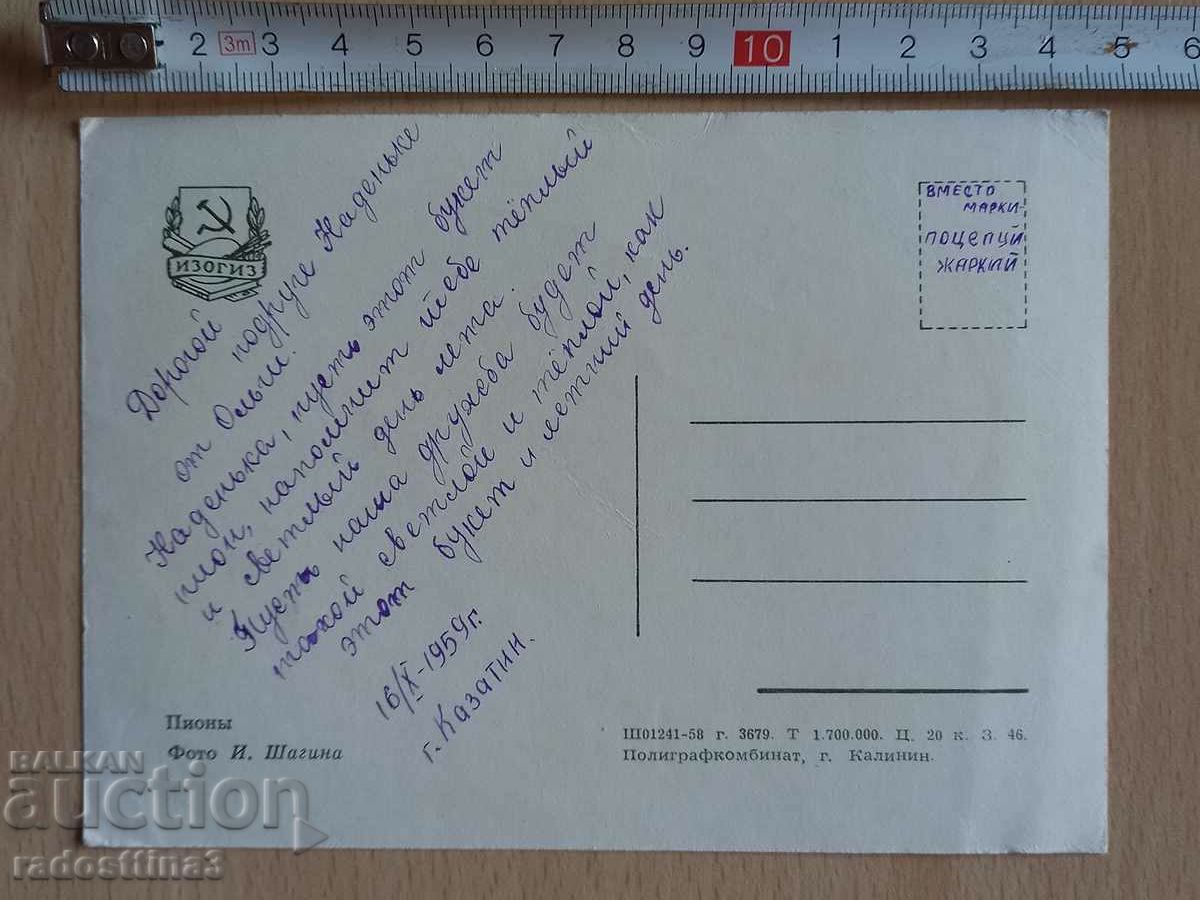 2 3m 3 4 5 6 7 8 9 10 1 2 3 4 5 6
ИЗОГИЗ
Дорогой подруге Наденьке
от Ольги.
Наденька, пусть этот букет
пион, напомнит тебе тёплый
и светлый день лета.
Пусть наша дружба будет
такой светлой и тёплой, как
этот букет и летний день.
16/X-1959г.
г. Казатин.
ВМЕСТО
МАРКИ
ПОЦЕЛУЙ
ЖАРКИЙ
Пионы
Фото И. Шагина
Ш01241-58 г. 3679. Т 1.700.000. Ц. 20 к. З. 46.
Полиграфкомбинат, г. Калинин.
BALKAN
auction
radosttina3